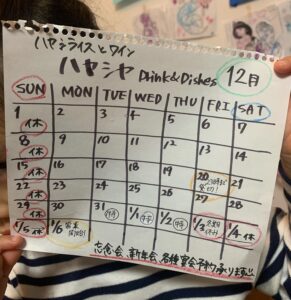 ハヤシライスとワイン
ハヤシヤ Drink&Dishes 12月
SUN MON TUE WED THU FRI SAT
1 休 2 3 4 5 6 7
8 休 9 10 11 12 13 14
15 休 16 17 18 19 20 21
22 休 23 24 25 26 27 28
29 休 30 31 1/1 1/2 1/3 1/4 休
1/5 休 1/6
忘年会 新年会 各種宴会予約承ります!!